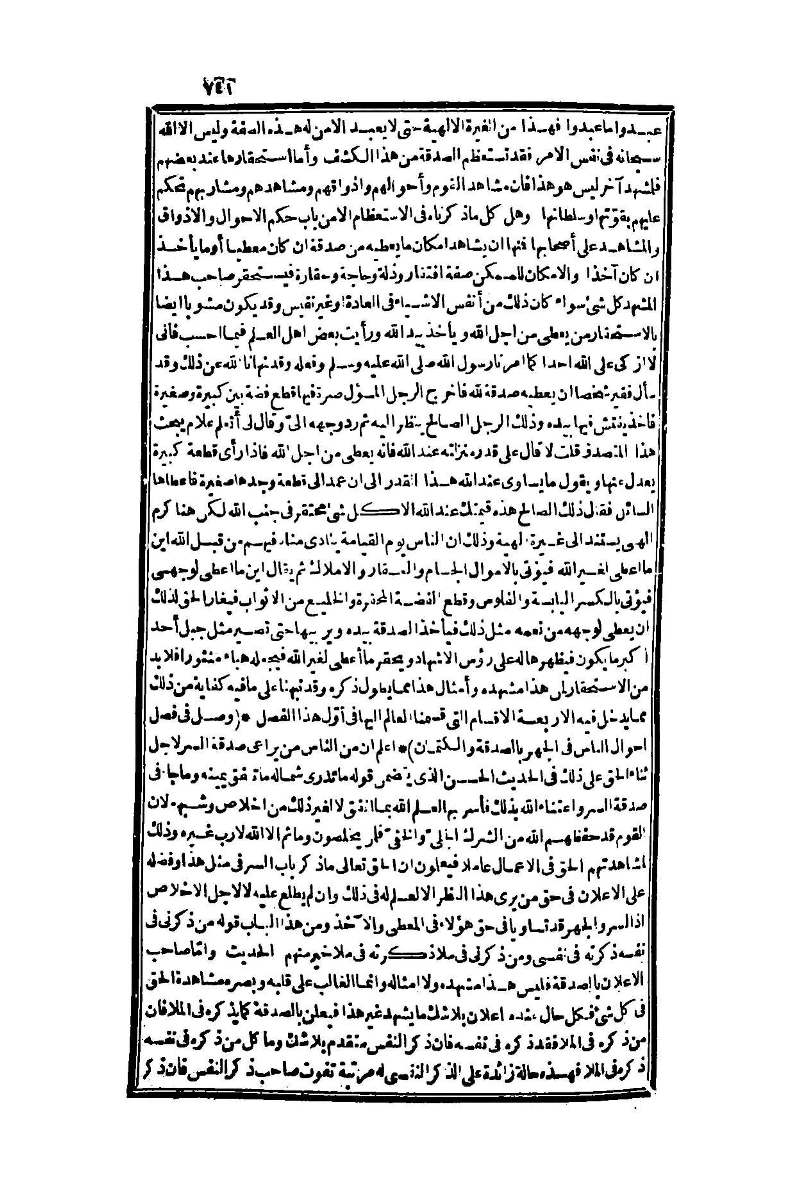 ٧٤٢
عبدوا ما عبدوا فهذا من الغيرة الالهية حتى لا يعبد الا من له هذه الصفة وليس الا الله
سبحانه فى نفس الامر فقد تستعظم الصدقة من هذا الكشف وأما استحقارها عند بعضهم
فلمشهد آخر ليس هو هذا فان مشاهد القوم وأحوالهم واذواقهم ومشاهدهم ومشاربهم تحكم
عليهم بقوتها وسلطانها وهل كل ما ذكرناه فى الاستعظام الا من باب حكم الاحوال والاذواق
والمشاهد على أصحابها فنها ان يشاهد امكان ما يعطيه من صدقة ان كان معطيا أو ما يأخذ
ان كان آخذا والامكان للممكن صفة افتقار وذلة وحاجة وحقارة فيستحقر صاحب هذا
المشهد كل شئ سواء كان ذلك من أنفس الاشياء فى العادة أو غير نفيس وقد يكون مشوبا ايضا
بالاستحقار من يعطى من اجل الله ويأخذ بيد الله ورأيت بعض اهل العلم فيما احسب فانى
لا ازكى على الله احدا كما امرنا رسول الله صلى الله عليه وسلم وفعله وقد نهانا الله عن ذلك وقد
سأل فقير شخصا ان يعطيه صدقة لله فاخرج الرجل المسؤل صرة فيها قطع فضة بين كبيرة وصغيرة
فاخذ يفتش فيها بيده وذلك الرجل الصالح ينظر اليه ثم رد وجهه الى وقال لى أتعلم علام يبحث
هذا المتصدق قلت لا قال على قدر منزلته عند الله فانه يعطى من اجل الله فاذا رأى قطعة كبيرة
يعدل عنها ويقول ما يساوى عند الله هذا القدر الى ان عمد الى قطعة وجدها صغيرة فاعطاها
السائل فقال ذلك الصالح هذه قيمتك عند الله الا كل شئ محتقر فى جنب الله لكن هنا كرم
الهى يستند الى غيرة الهية وذلك ان الناس يوم القيامة ينادى مناد فيهم من قبل الله اين
ما اعطى لغير الله فيؤتى بالاموال الجسام والعقار والاملاك ثم يقال اين ما اعطى لوجهى
فيؤتى بالكسر اليابسة والفلوس وقطع الفضة المحقرة والخليع من الاثواب فيغار الحق لذلك
ان يعطى لوجهه من نعمه مثل ذلك فيأخذ الصدقة بيده ويربيها حتى تصير مثل جبل أحد
اكبر ما يكون فيظهرها له على رؤس الاشهاد ويحقر ما أعطى لغير الله فيجعله هباء منثورا فلا بد
من الاستحقار لمن هذا مشهده وأمثال هذا مما يطول ذكره وقد نبهنا على ما فيه كفاية من ذلك
مما يدخل فيه الاربعة الاقسام التى قسمنا العالم اليها فى أول هذا الفصل *(وصل فى فصل
احوال الناس فى الجهر بالصدقة والكتمان)* اعلم ان من الناس من يراعى صدقة السر لاجل
ثناء الحق على ذلك فى الحديث الحسن الذى يتضمن قوله ما تدرى شماله ما تنفق يمينه وما جاء فى
صدقة السر واعتناء الله بذلك فأسر بها لعلم الله بما انفق لا لغير ذلك من اخلاص وشبهه لان
القوم قد حفظهم الله من الشرك الجلى والخفى فلم يخلصون وما ثم الا الله لا رب غيره وذلك
لمشاهدتهم الحق فى الاعمال عاملا فيعلمون ان الحق تعالى ما ذكر باب السر فى مثل هذا وفضله
على الاعلان فى حق من يرى هذا النظر الا لعلم له فى ذلك وان لم يطلع عليه لا لاجل الاخلاص
اذ السر والجهر قد تساويا فى حق هؤلاء فى المعطى والآخذ ومن هذا الباب قوله من ذكرنى فى
نفسه ذكرته فى نفسى ومن ذكرنى فى ملا ذكرته فى ملا خير منهم الحديث وأما صاحب
الاعلان بالصدقة فليس هذا مشهده ولا امثاله وانما الغالب على قلبه وبصره مشاهدة الحق
فى كل شئ فكل حال عنده اعلان بلا شك ما يشهد غير هذا فيعلن بالصدقة كما يذكره فى الملا فان
من ذكره فى الملا فقد ذكره فى نفسه فان ذكر النفس متقدم بلا شك وما كل من ذكره فى نفسه
ذكره فى الملا فهذه حالة زائدة على الذكر النفسى له مرتبة تفوت صاحب ذكر النفس فان ذكر